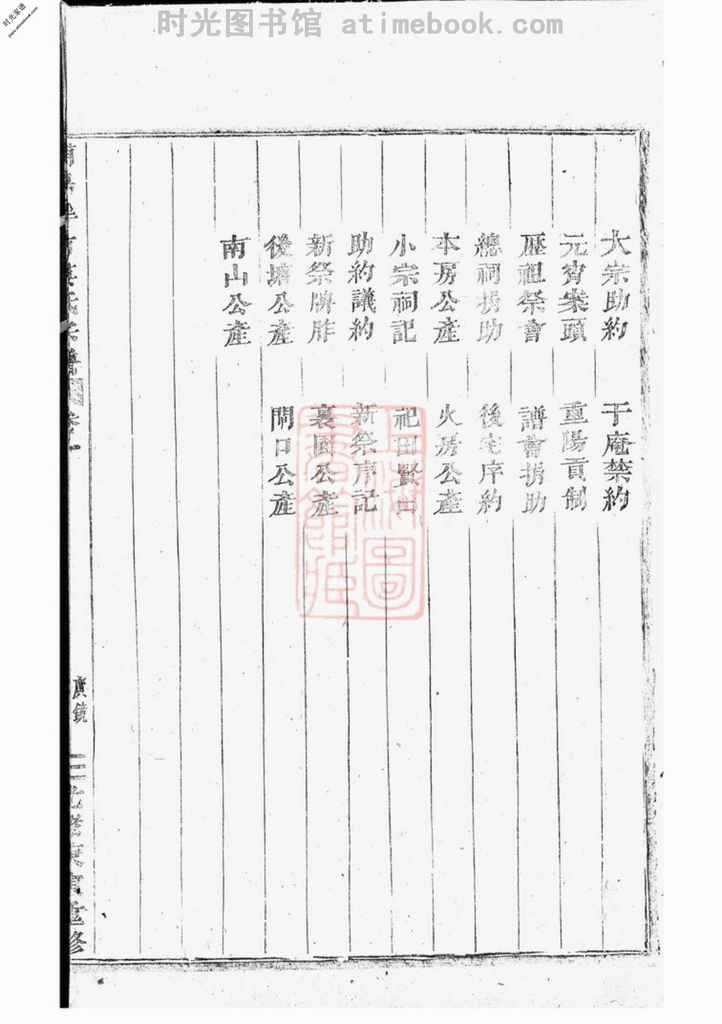 时光图书馆 atimebook.com
时光家谱
www.atimebook.com
大宗助約 于庵禁約
元宵案頭 重陽貢制
歷祖祭會 譜會捐助
總祠捐助 後宅序約
本房公產 火房公產
小宗祠記 祀田
助約議約 新祭序記
新祭牌胙 裏園公產
後塘公產 閘口公產
南山公產
光緒庚寅重修